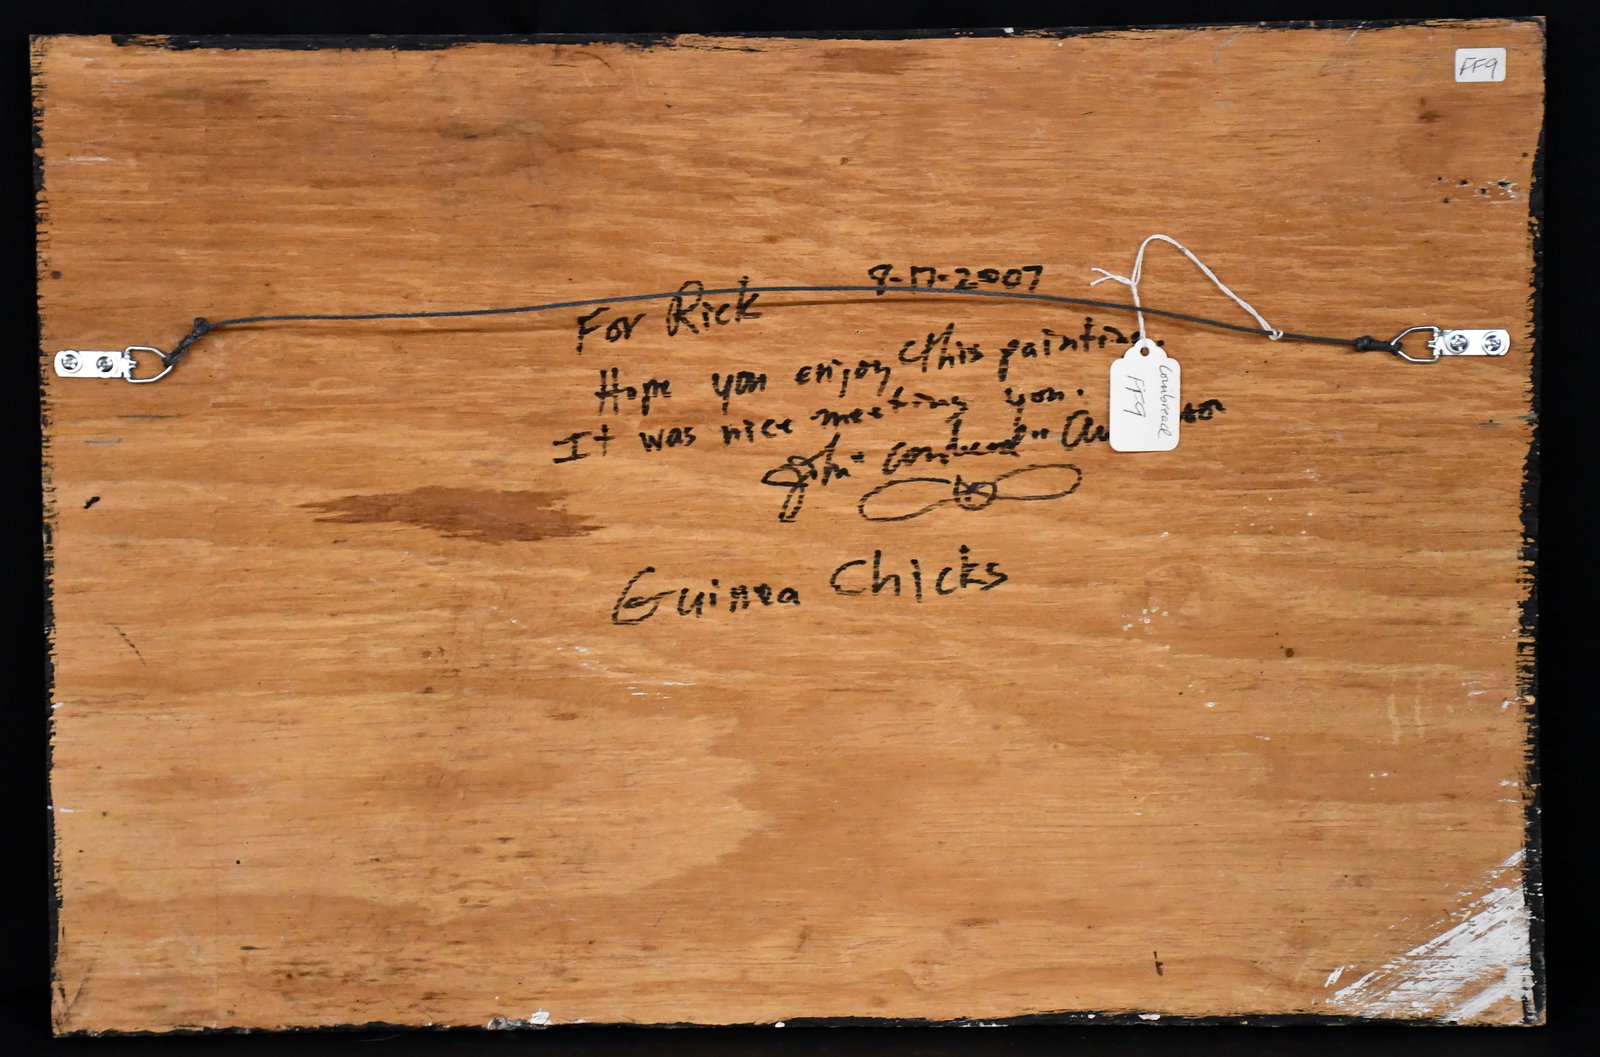 FF9
8-17-2007
For Rick
Hope you enjoy this painting.
It was nice meeting you.
John "Cornbread"
Guinea Chicks
Cornbread
FF9